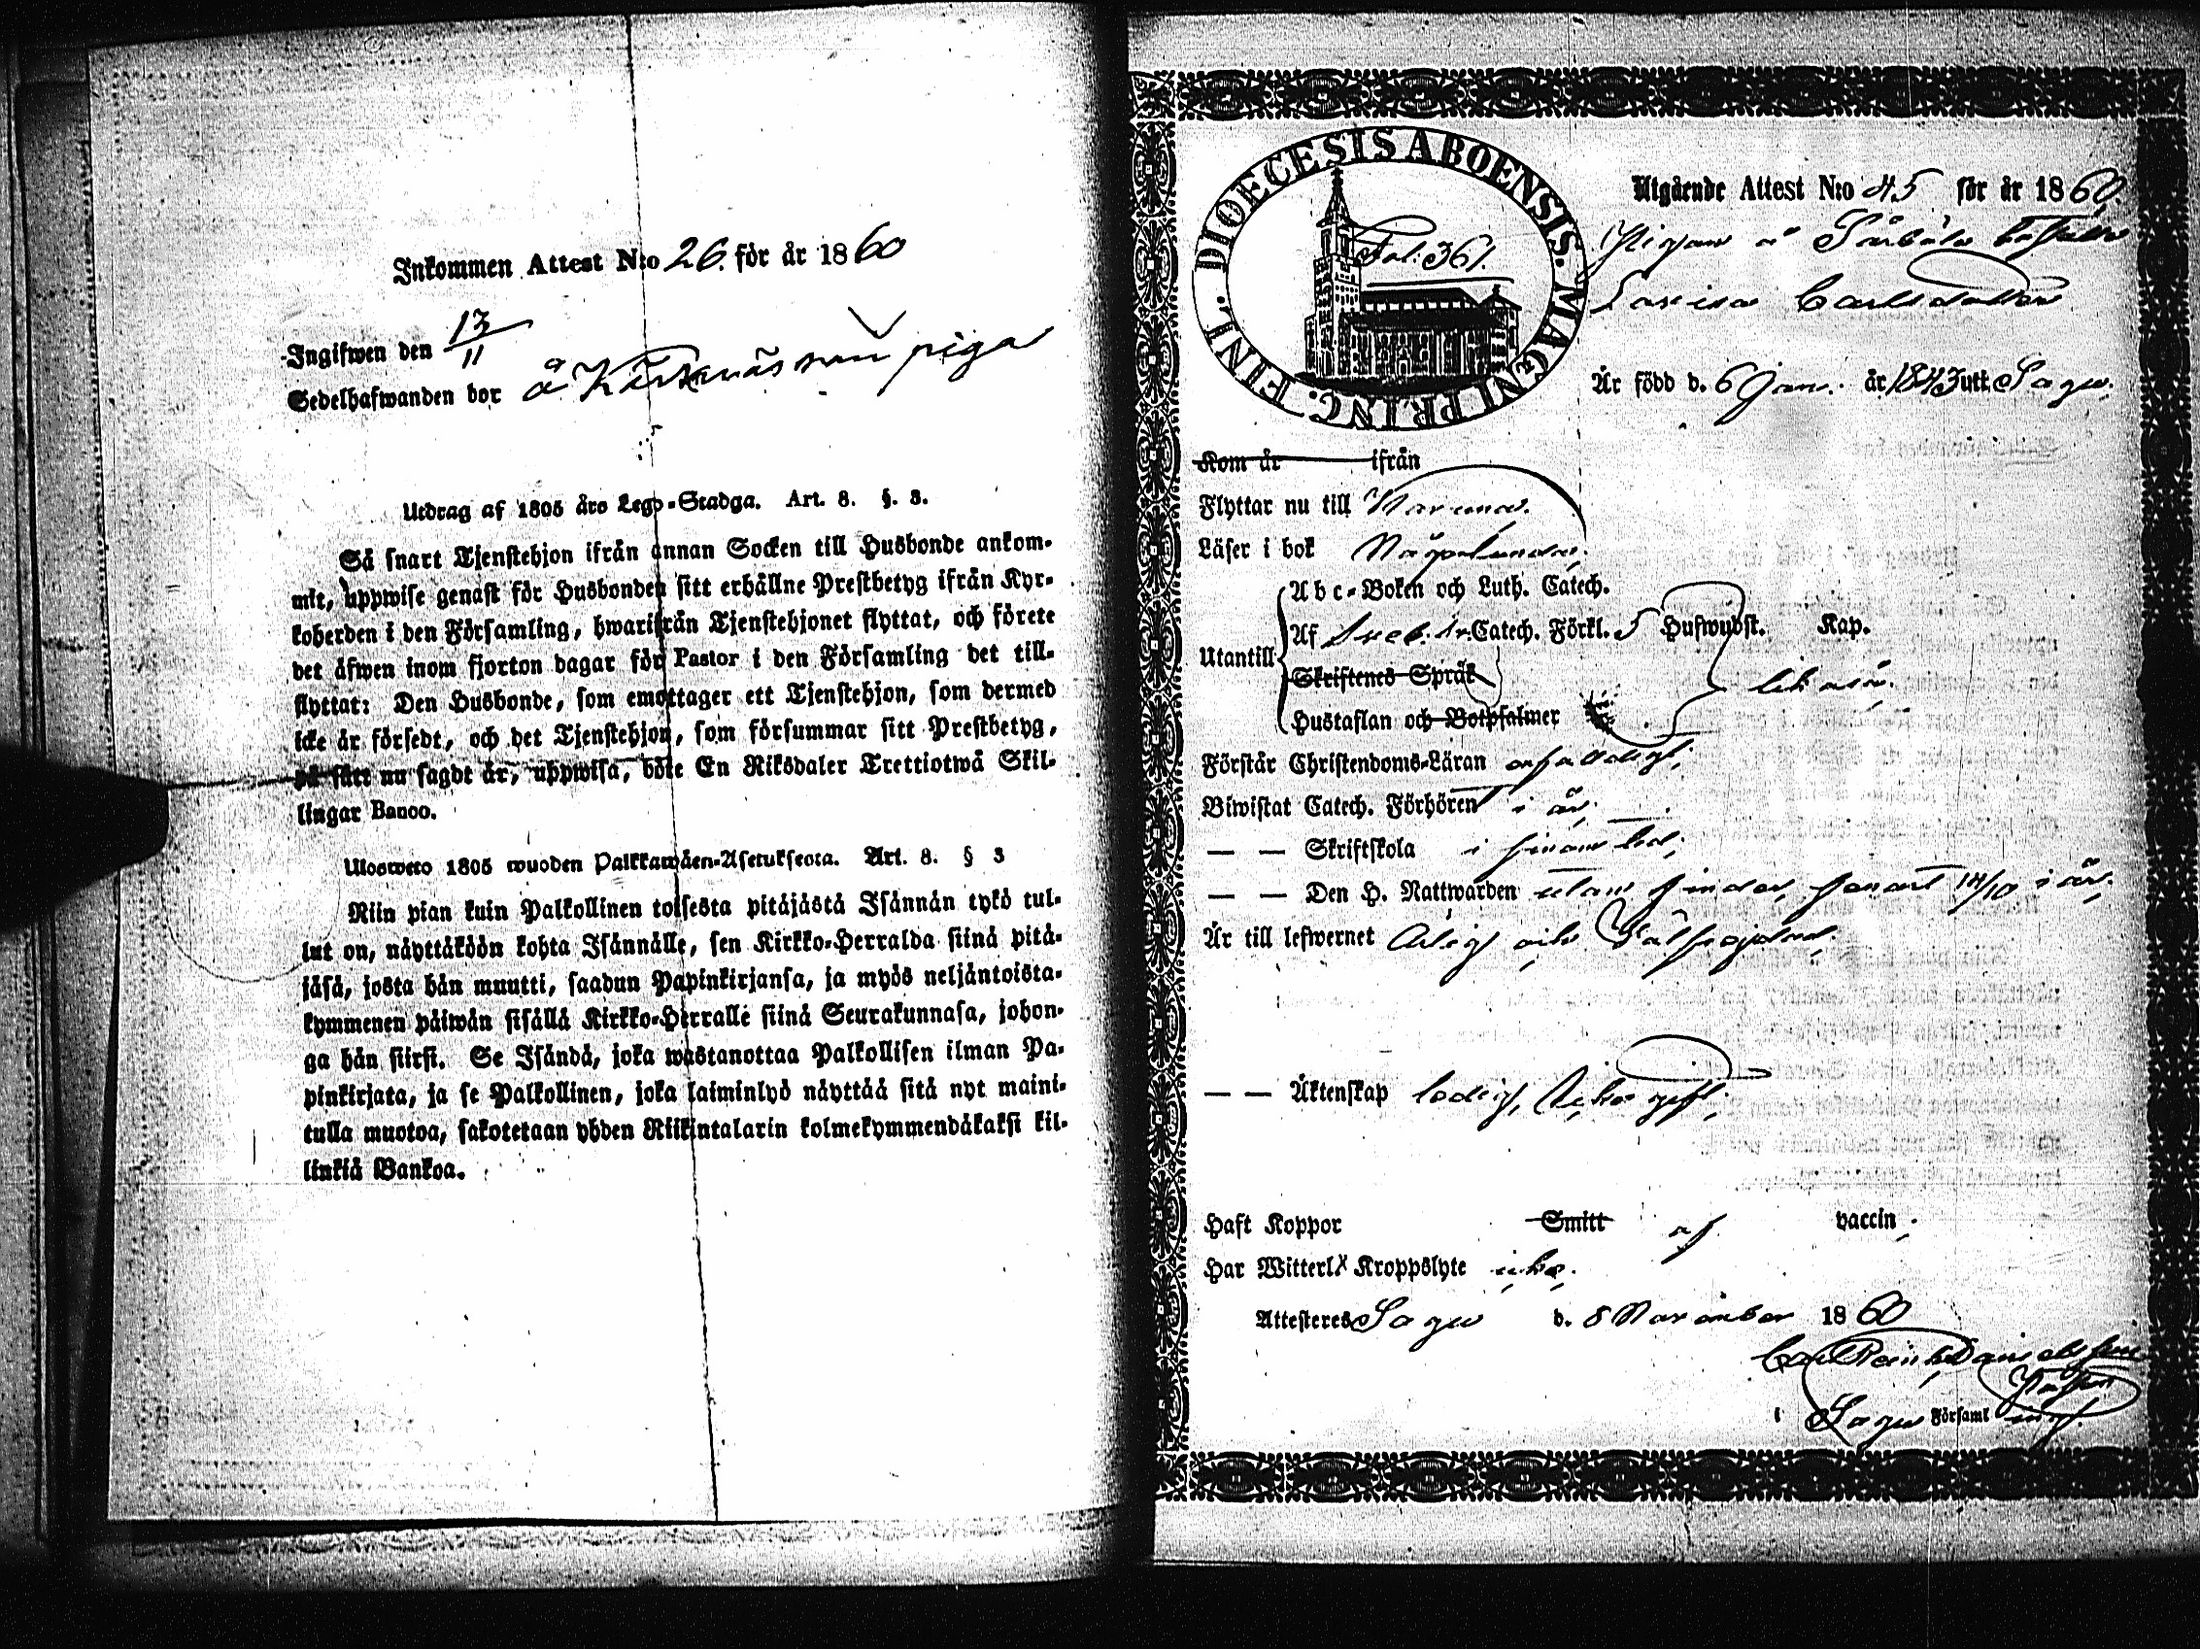 Inkommen Attest N:o 26. för år 1860
Ingifwen den 13/11
Sedelhafwanden bor å Karknäs som piga
Utdrag af 1805 års Lego-Stadga. Art. 8. §. 3.
Så snart Tjenstehjon ifrån annan Socken till Husbonde ankom-
mit, uppwise genast för Husbonden sitt erhållne Prestbetyg ifrån Kyr-
koherden i den Församling, hwarifrån Tjenstehjonet flyttat, och förete
det äfwen inom fjorton dagar för Pastor i den Församling det till-
flyttat: Den Husbonde, som emottager ett Tjenstehjon, som dermed
icke är försedt, och det Tjenstehjon, som försummar sitt Prestbetyg,
på sätt nu sagdt är, uppwisa, böte En Riksdaler Trettiotwå Skil-
lingar Banco.
Ulosweto 1805 wuoden Palkkawäen-Asetuksesta. Art. 8. § 3
Niin pian kuin Palkollinen toisesta pitäjästä Isännän tykö tul-
lut on, näyttäköön kohta Isännälle, sen Kirkko-Herralda siinä pitä-
jäsä, josta hän muutti, saadun Papinkirjansa, ja myös neljäntoista-
kymmenen päiwän sisällä Kirkko-Herralle siinä Seurakunnasa, johon-
ga hän siirsi. Se Isändä, joka wastanottaa Palkollisen ilman Pa-
pinkirjata, ja se Palkollinen, joka laiminlyö näyttää sitä nyt maini-
tulla muotoa, sakotetaan yhden Riikintalarin kolmekymmendäkaksi kil-
linkiä Bankoa.
DIOECESIS ABOENSIS. MAGNI PRINC. FINL.
Fol: 361.
Utgående Attest N:o 45 för år 1860.
Pigan å Särböle
Lovisa Carlsdotter
Är född d. 6 Jan. år 1843 utt Sagu.
Kom år ifrån
Flyttar nu till
Läser i bok
Utantill
A b c-Boken och Luth. Catech.
Af Sveb. Catech. Förkl. 5 Hufwudst. Kap.
Skriftenes Språk likaså.
Hustaflan och Botpsalmer
Förstår Christendoms-Läran enfaldigt,
Biwistat Catech. Förhören i år,
— — Skriftskola i sinom tid,
— — Den H. Nattwarden utan hinder, senast 14/10 i år,
Är till lefwernet ärlig och välfrejdad.
— — Äktenskap ledig, icke gift,
Haft Koppor Smitt af vaccin,
Har Witterl. Kroppslyte icke.
Attesteres Sagu d. 8 November 1860
Carl Reinh. Danielsson
Pastor
i Sagu Församling